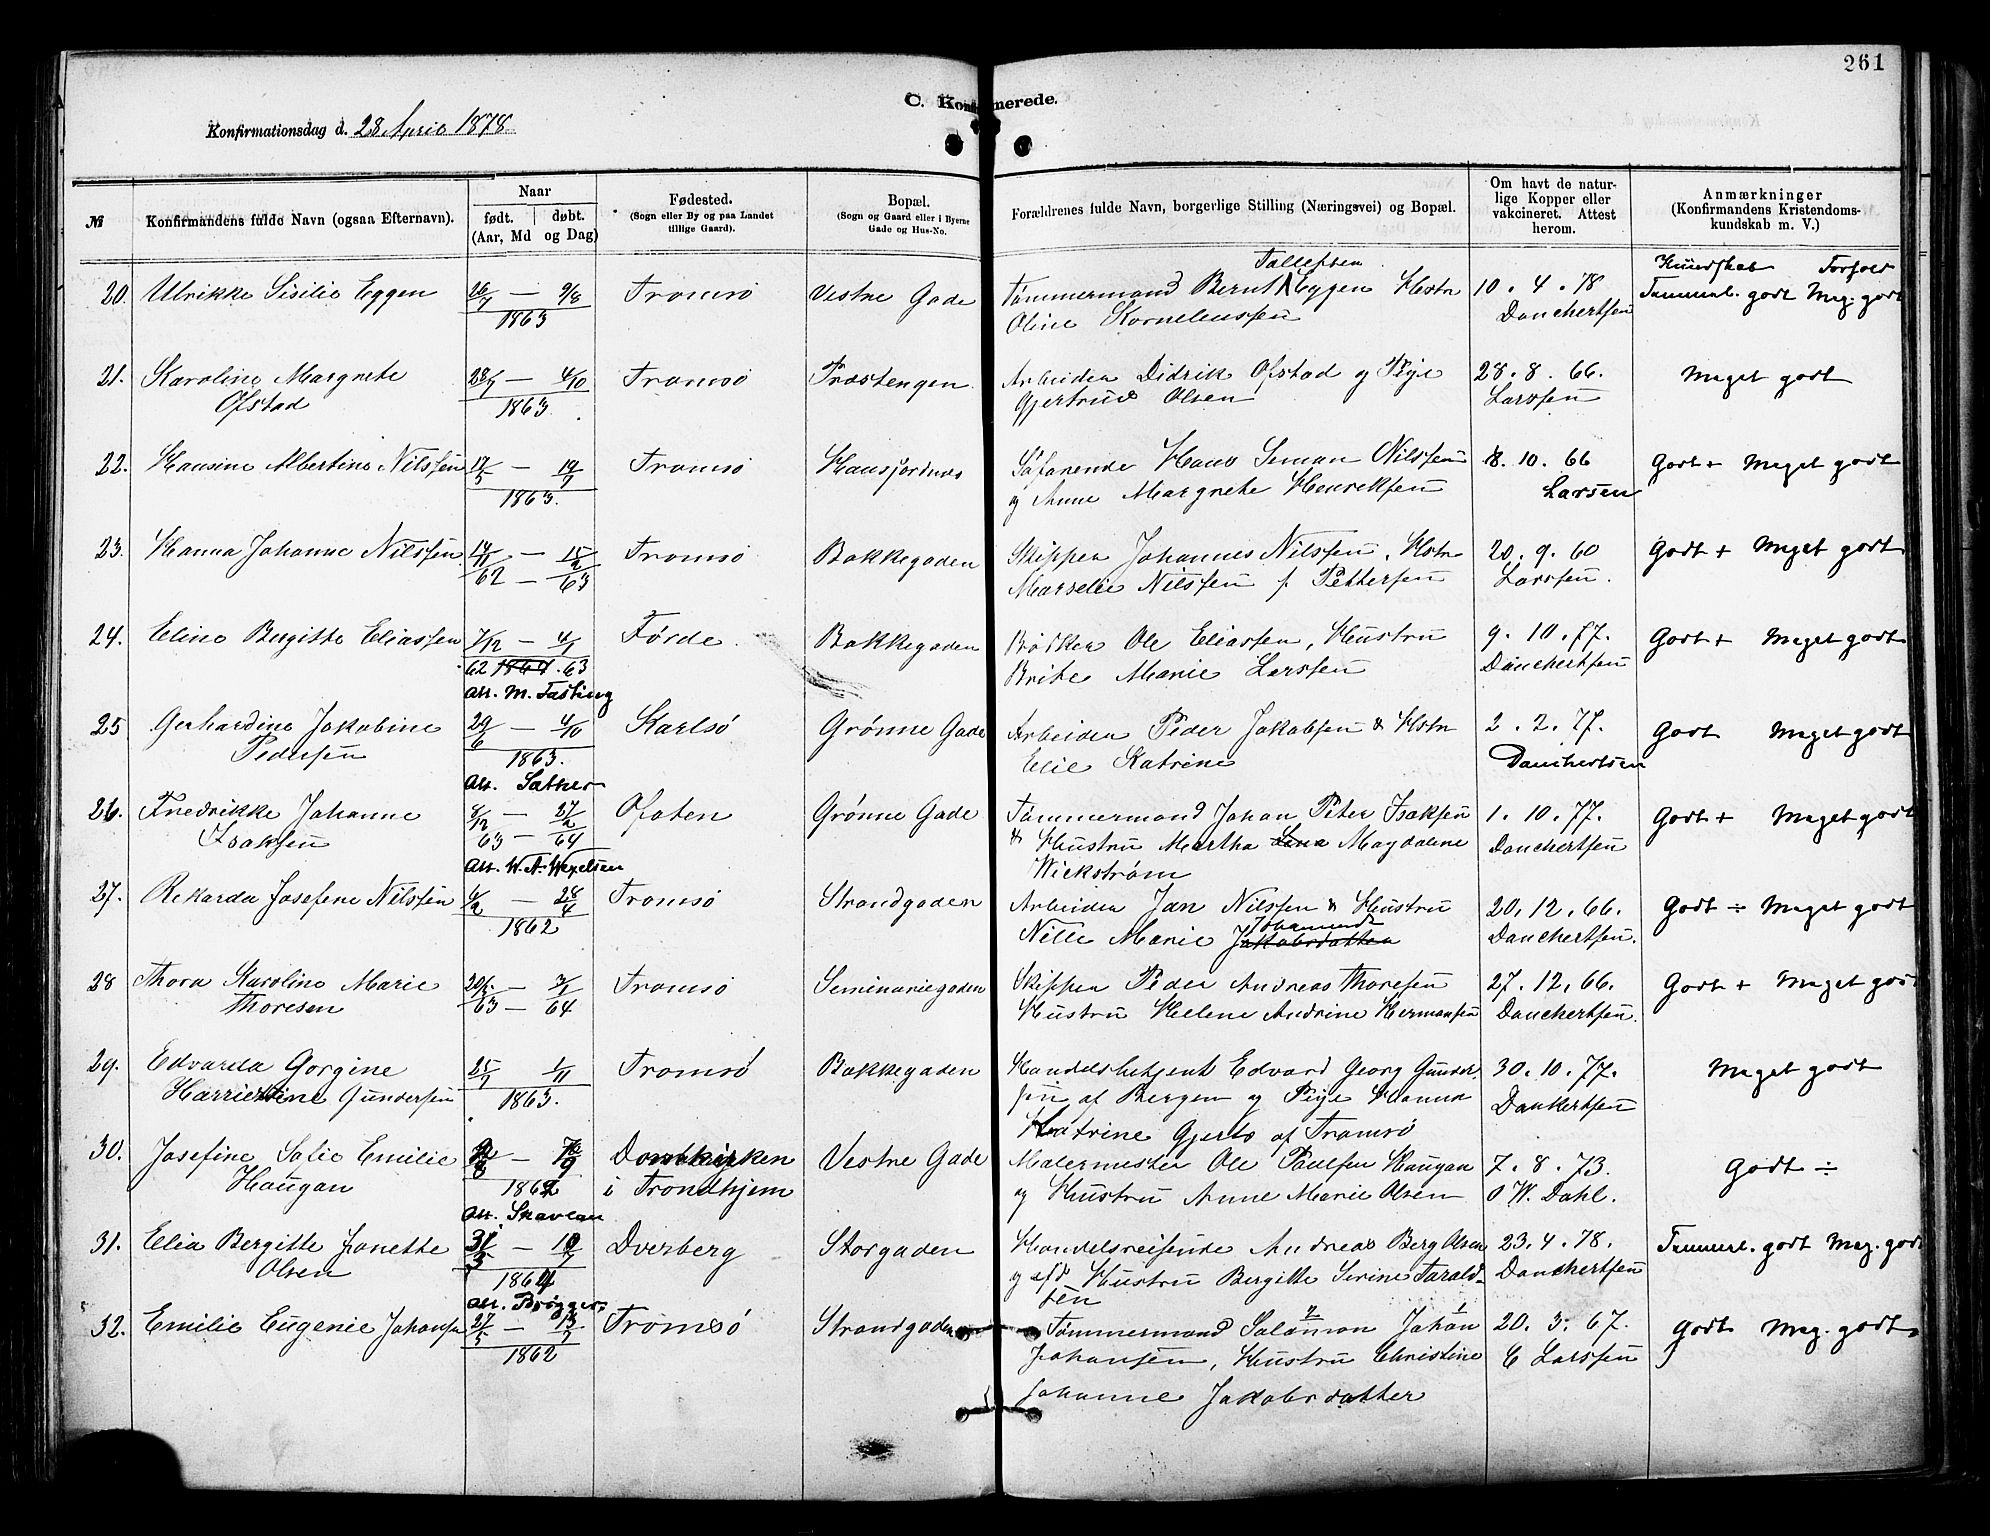 261
C. Konfirmerede.
Konfirmationsdag d. 28 April 1878
№
Konfirmandens fulde Navn (ogsaa Efternavn).
Naar
født. | døbt.
(Aar, Md og Dag)
Fødested.
(Sogn eller By og paa Landet
tillige Gaard).
Bopæl.
(Sogn og Gaard eller i Byerne
Gade og Hus-No.
Forældrenes fulde Navn, borgerlige Stilling (Næringsvei) og Bopæl.
Om havt de natur-
lige Kopper eller
vakcineret. Attest
herom.
Anmærkninger
(Konfirmandens Kristendoms-
kundskab m. V.)
Tollefsen Kundskab Forhold
20. Ulrikke Sisilie Eggen 26/7 — 9/8 Tromsø Vestre Gade Tømmermand Bernt Eggen Hstr 10. 4. 78 Temmel. godt Meg. godt
1863 Oline Korneliussen Danchertsen
21. Karoline Margrete 28/7 — 4/10 Tromsø Præstengen Arbeider Didrik Ofstad og Pige 28. 8. 66. Meget godt
Ofstad 1863 Gjertrud Olsen Larssen
22. Hansine Albertine Nilssen 17/5 — 19/7 Tromsø Hansjordnes Søfarende Hans Simon Nilssen 8. 10. 66 Godt + Meget godt
1863. og Anne Margrete Henriksen Larsen
23. Hanna Johanne Nilssen 14/11 — 15/2 Tromsø Bakkegaden Skipper Johannes Nilssen, Hstr 20. 9. 60 Godt + Meget godt
62 — 63 Marselie Nilssen f. Pettersen Larssen.
24. Eline Bergitte Eliassen 7/12 — 4/1 Førde. Bakkegaden Bødker Ole Eliassen, Hustru 9. 10. 77. Godt + Meget godt
62 1864. 63 Brite Marie Larssen Danchertsen
Att. M. Tasting
25 Gerhardine Jakobine 29/6 — 4/10 Karlsø Grønne Gade Arbeider Peder Jakobsen & Hstr 2. 2. 77. Godt Meget godt
Pedersen 1863. Elie Katrine Danchertsen
Att. Sather
26. Fredrikke Johanne 8/12 — 27/2 Ofoten Grønne Gade Tømmermand Johan Peter Isaksen 1. 10. 77. Godt + Meget godt
Isaksen 63 — 64 & Hustru Martha Lena Magdalene Danchertsen
Att. W. A. Wexelsen Wickstrøm
27. Rikarda Josefine Nilssen 6/2 — 28/4 Tromsø Strandgaden Arbeider Jan Nilssen & Hustru 20. 12. 66. Godt ÷ Meget godt
1862 Nille Marie Jakobsdatter Danchertsen.
28 Thora Karoline Marie 20/5 — 3/1 Tromsø Seminariegaden Skipper Peder Andreas Thoresen 27. 12. 66. Godt + Meget godt
Thoresen 63 — 64 Hustru Helene Andrine Hermansen Danchertsen.
29. Edvarda Gorgine 25/7 1/11 Tromsø Bakkegaden Handelsbetjent Edvard Georg Gunder- 30. 10. 77. Meget godt
Harriettine Gundersen 1863. sen af Bergen og Pige Hanna Dankertsen
Katrine Gjerts af Tromsø
30. Josefine Sofie Emilie Domkirken Vestre Gade Malermester Ole Paulsen Haugan 7. 8. 73. Godt ÷
Haugan 1862 i Trondhjem og Hustru Anne Marie Olsen O W. Dahl.
Att. Skavlan
31. Elia Bergitte Janette 31/3 — 10/7 Dverberg Storgaden Handelsreisende Andreas Berg Olsen 23. 4. 78. Temmel. godt Meg. godt
Olsen 1864 og afd Hustru Bergitte Serine Tarald- Danchertsen
Att. Brøgger. sen
32. Emilie Eugenie Johansen 27/5 — 13/7 Tromsø Strandgaden Tømmermand Salomon Johan 20. 3. 67. Godt Meg. godt
1862 Johansen, Hustru Christine C Larssen
Johanne Jakobsdatter